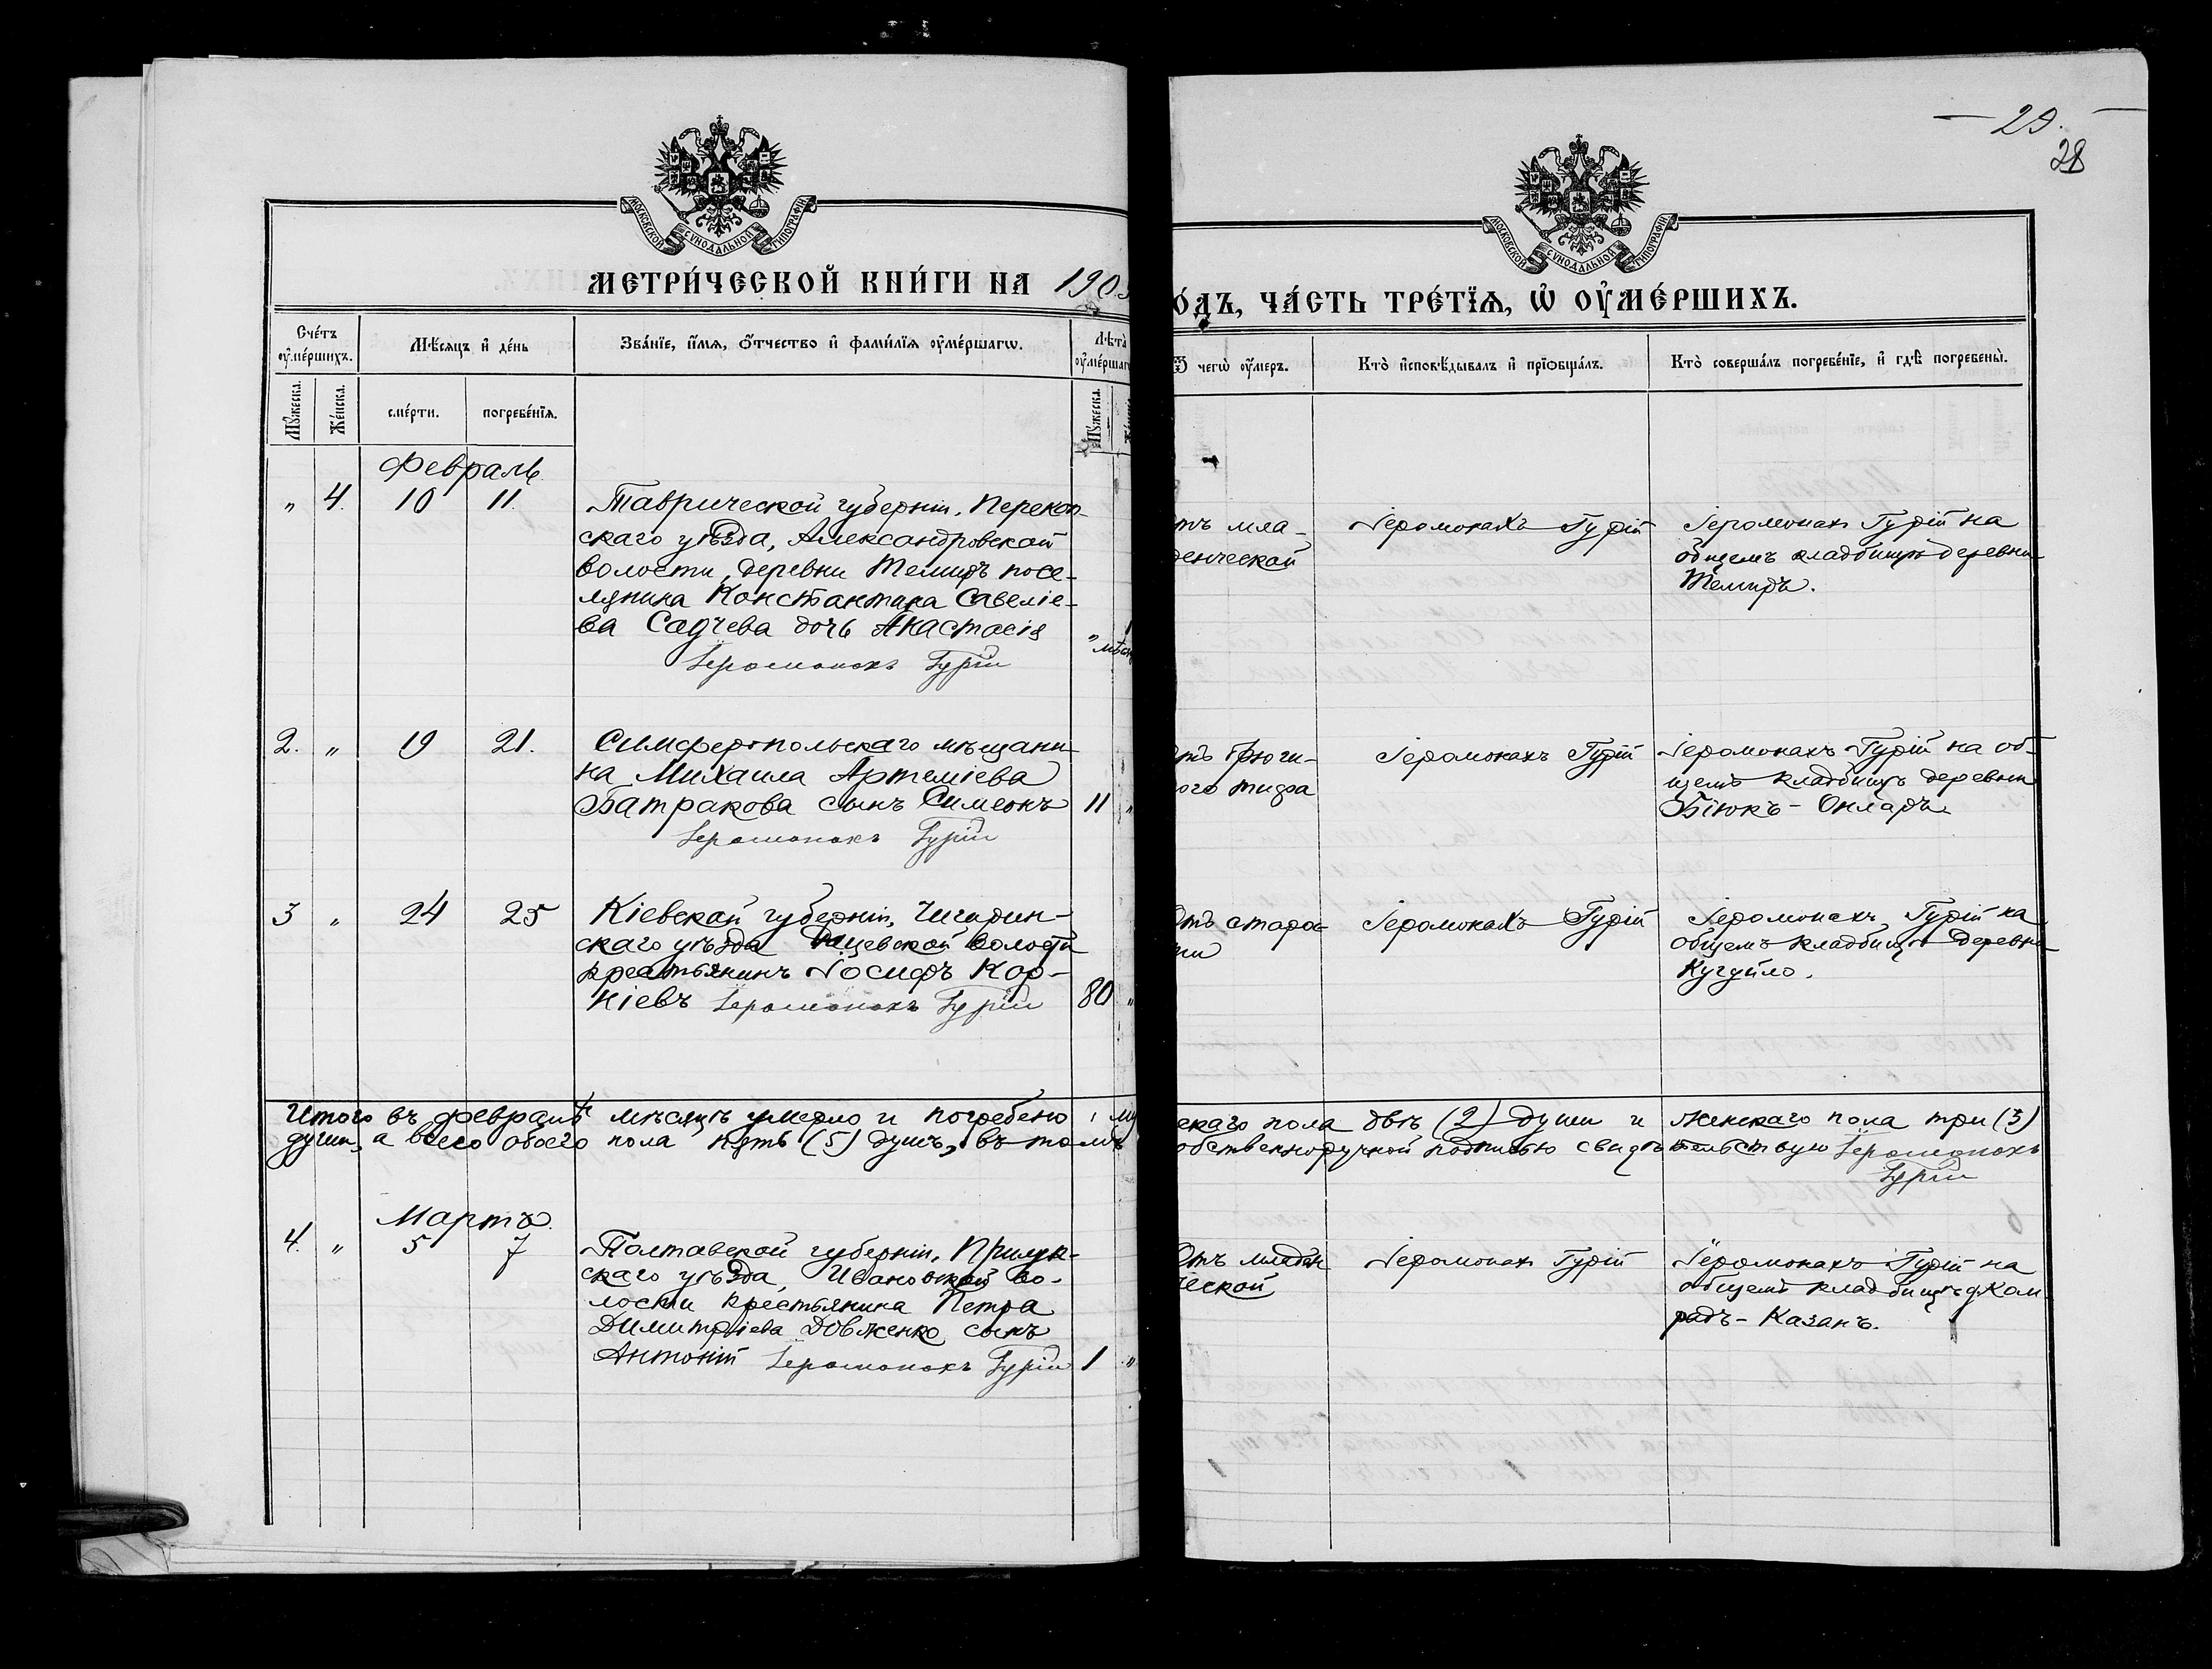 — 29. —
28
МОСКОВСКОЙ СУНОДАЛЬНОЙ ТИПОГРАФІИ
МОСКОВСКОЙ СУНОДАЛЬНОЙ ТИПОГРАФІИ
МЕТРИ́ЧЕСКОЙ КНИ́ГИ НА 190
О́ДЪ, ЧА́СТЬ ТРЕ́ТЇѦ, Ѡ҆ ОУ҆МЕ́РШИХЪ.
Сче́тъ оу҆ме́ршихъ.
Мѣ́сяцъ и҆ де́нь
Зва́нїе, и҆́мѧ, ѻ҆́тчество и҆ фами́лїѧ оу҆ме́ршагѡ.
Лѣ́та оу҆ме́ршаг
Ѿ чегѡ̀ оу҆́меръ.
Кто̀ и҆сповѣ́дывалъ и҆ прїѡбща́лъ.
Кто̀ соверша́лъ погребе́нїе, и҆ гдѣ̀ погребены̀.
Мꙋ́жеска.
Же́нска.
сме́рти.
погребе́нїѧ.
Мꙋ́жеска.
Февраль
" 4. 10 11.
Таврической губерніи, Перекоп-
скаго уѣзда, Александровской
волости, деревни Темиръ посе-
лянина Константина Савеліе-
ва Садчева дочь Анастасія
Іеромонахъ Гурій
" 1
мѣс
тъ мла-
денческой
Іеромонахъ Гурій
Іеромонах Гурій на
общемъ кладбищѣ деревни
Темиръ.
2. " 19 21.
Симферопольскаго мѣщани-
на Михаила Артеміева
Батракова сынъ Симеонъ 11 "
Іеромонахъ Гурій
тъ брюш-
ого тифа
Іеромонахъ Гурій
Іеромонахъ Гурій на об-
щемъ кладбищѣ деревни
Бiюкъ-Онларъ
3 " 24 25
Кіевской губерніи, Чигирин-
скаго уѣзда
волости
крестьянинъ Іосифъ Кор-
ніевъ Іеромонахъ Гурій 80 "
Отъ старос-
ти
Іеромонахъ Гурій
Іеромонахъ Гурій на
общемъ кладбищѣ деревни
Итого въ февралѣ мѣсяцѣ умерло и погребено му
ескаго пола двѣ (2) души и женскаго пола три (3)
души, а всего обоего пола пять (5) душъ, въ томъ
обственноручной подписью свидѣтельствую Іеромонахъ
Гурій
Мартъ.
4. " 5 7
Полтавской губерніи, Прилук-
скаго уѣзда, Ивановской во-
лости крестьянина Петра
Димитріева Довженко сынъ
Антоній Іеромонахъ Гурій 1 "
Отъ младен
ческой
Іеромонах Гурій
Іеромонахъ Гурій на
общемъ кладбищѣ Джам
радъ-Казанъ.